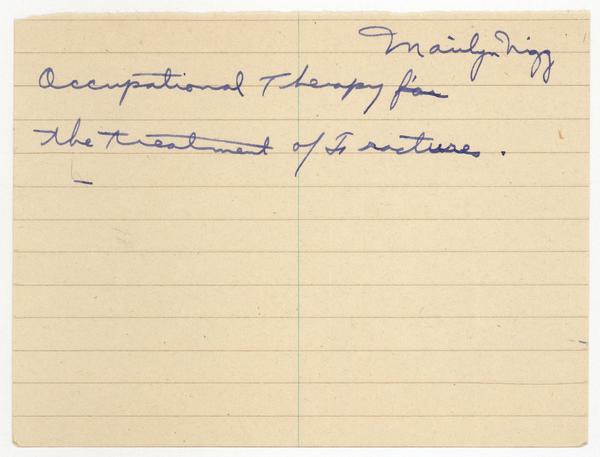 Marilyn Nigg
Occupational Therapy for
the treatment of Fractures.